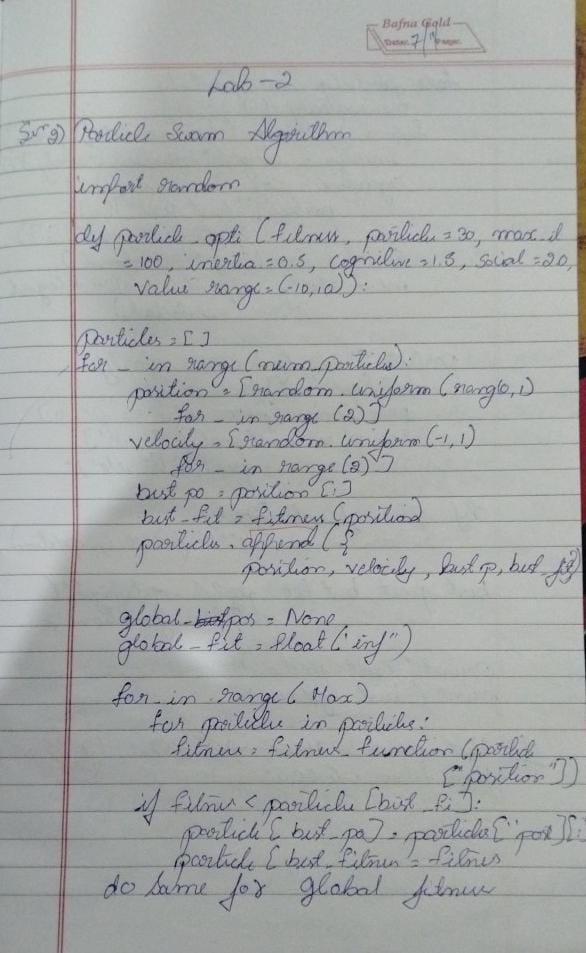 Bafna Gold
Date: 7/11 Page:
Lab - 2
2) Particle Swam Algorithm
import random
def particle_opti (fitness, particle = 30, max_it
= 100, inertia = 0.5, cognitive = 1.5, social = 2.0,
value range = (-10, 10)):
Particles = [ ]
for _ in range (num_particles):
position = [random.uniform (rang(0, 1)
for _ in range (2)]
velocity = [random.uniform (-1, 1)
for _ in range (2)]
best po = position [:]
best_fit = fitness (position)
particles.append ({
position, velocity, best p, best_fit})
global_pos = None
global_fit = float ("inf")
for _ in range ( Max)
for particle in particles:
fitness = fitness_function (particle
["position"])
if fitness < particle [best_fi]:
particle [best_po] = particles ["pos"][:]
particle [best_fitness = fitness
do same for global fitness